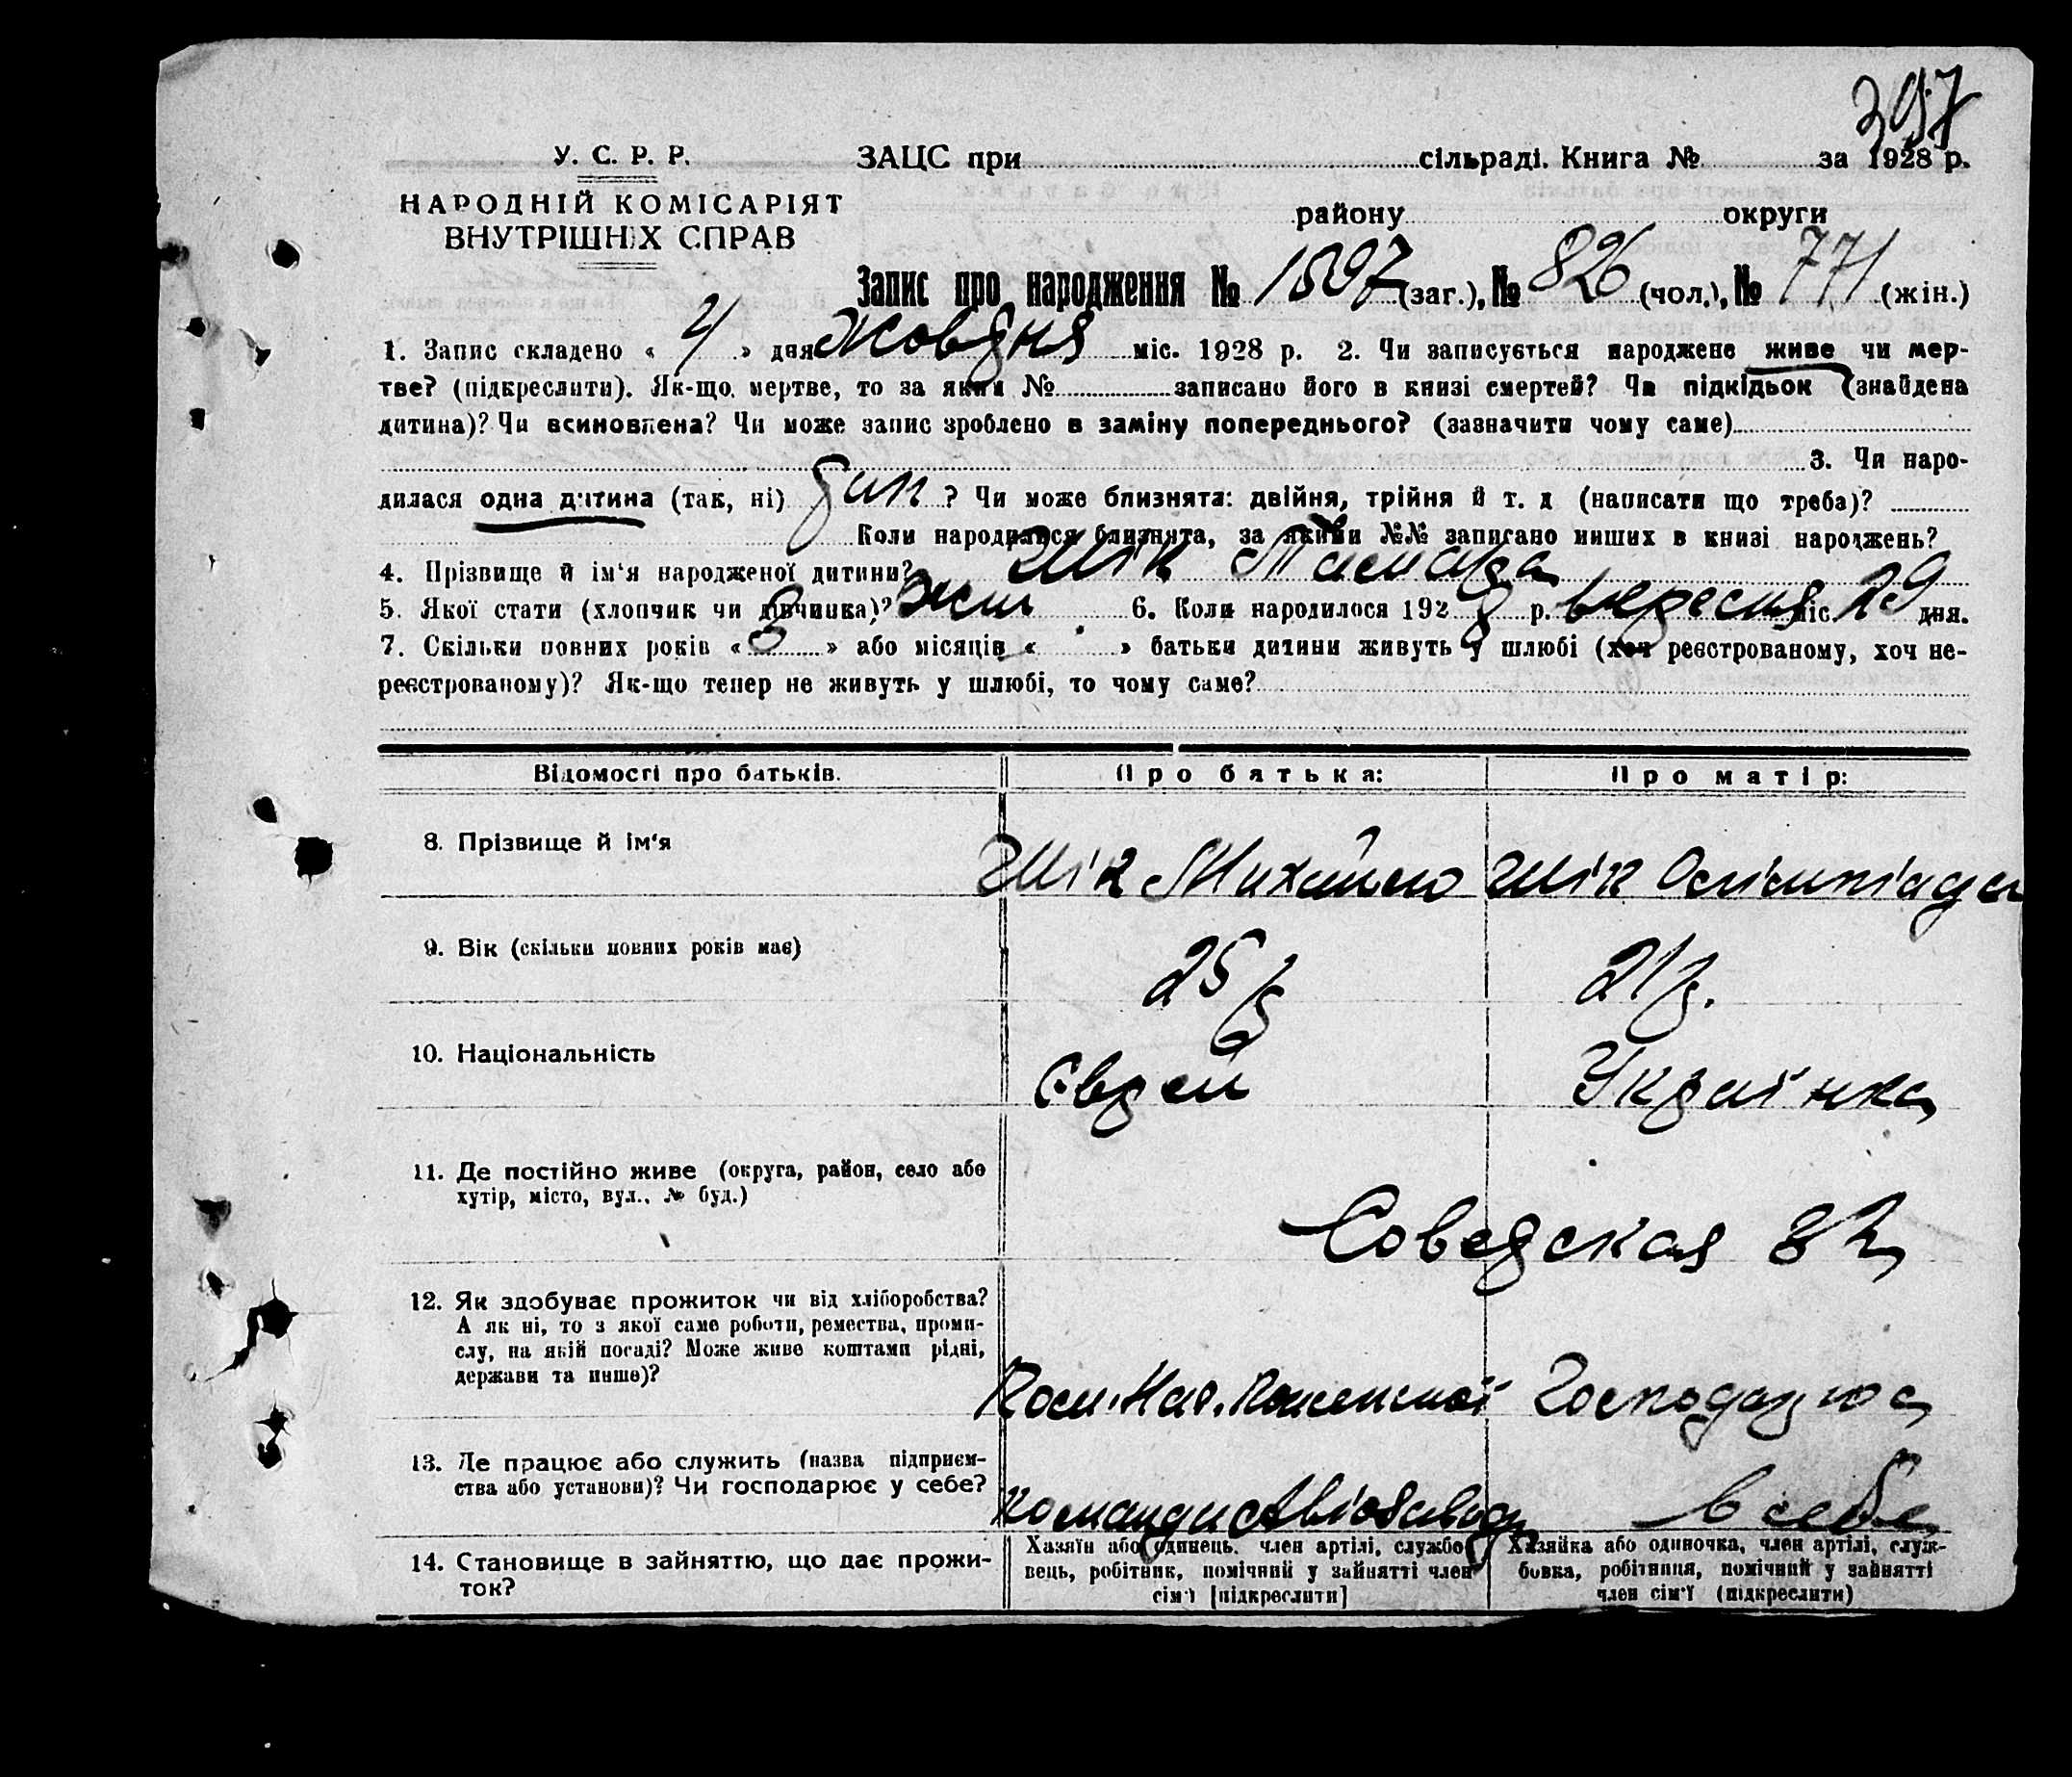 397
У. С. Р. Р.
ЗАЦС при сільраді. Книга № за 1928 р.
НАРОДНІЙ КОМІСАРІЯТ
ВНУТРІШНІХ СПРАВ
району округи
Запис про народження № 1597 (заг.), № 826 (чол.), № 771 (жін.)
1. Запис складено « 4 » дня Жовтня міс. 1928 р. 2. Чи записується народжене живе чи мер-
тве? (підкреслити). Як-що мертве, то за яким № записано його в книзі смертей? Чи підкідьок (знайдена
дитина)? Чи всиновлена? Чи може запис зроблено в заміну попереднього? (зазначити чому саме)
3. Чи наро-
дилася одна дитина (так, ні) ? Чи може близнята: двійня, трійня й т. д (написати що треба)?
Коли народилися близнята, за якими №№ записано инших в книзі народжень?
4. Прізвище й ім'я народженої дитини? Шік Тамара
5. Якої стати (хлопчик чи дівчинка)? жін 6. Коли народилося 1928 р. вересня міс. 29 дня.
7. Скільки повних років « 3 » або місяців « » батьки дитини живуть у шлюбі (хоч реєстрованому, хоч не-
реєстрованому)? Як-що тепер не живуть у шлюбі, то чому саме?
Відомості про батьків. Про батька: Про матір:
8. Прізвище й ім'я Шік Михайло Шік Олімпіада
9. Вік (скільки повних років має) 25 р 21 р.
10. Національність Єврей Українка
11. Де постійно живе (округа, район, село або
хутір, місто, вул., № буд.)
Совєтская 82
12. Як здобуває прожиток чи від хліборобства?
А як ні, то з якої саме роботи, ремества, проми-
слу, на якій посаді? Може живе коштами рідні,
держави та инше)?
Пом. Нач. Пожежної Господарює
13. Де працює або служить (назва підприєм-
ства або установи)? Чи господарює у себе?
команди Авіозавод в себе
14. Становище в зайняттю, що дає прожи-
ток?
Хазяїн або одинець, член артілі, службо-
вець, робітник, помічний у зайнятті член
сім'ї [підкреслити]
Хазяйка або одиночка, член артілі, служ-
бовка, робітниця, помічний у зайнятті
член сім'ї (підкреслити)